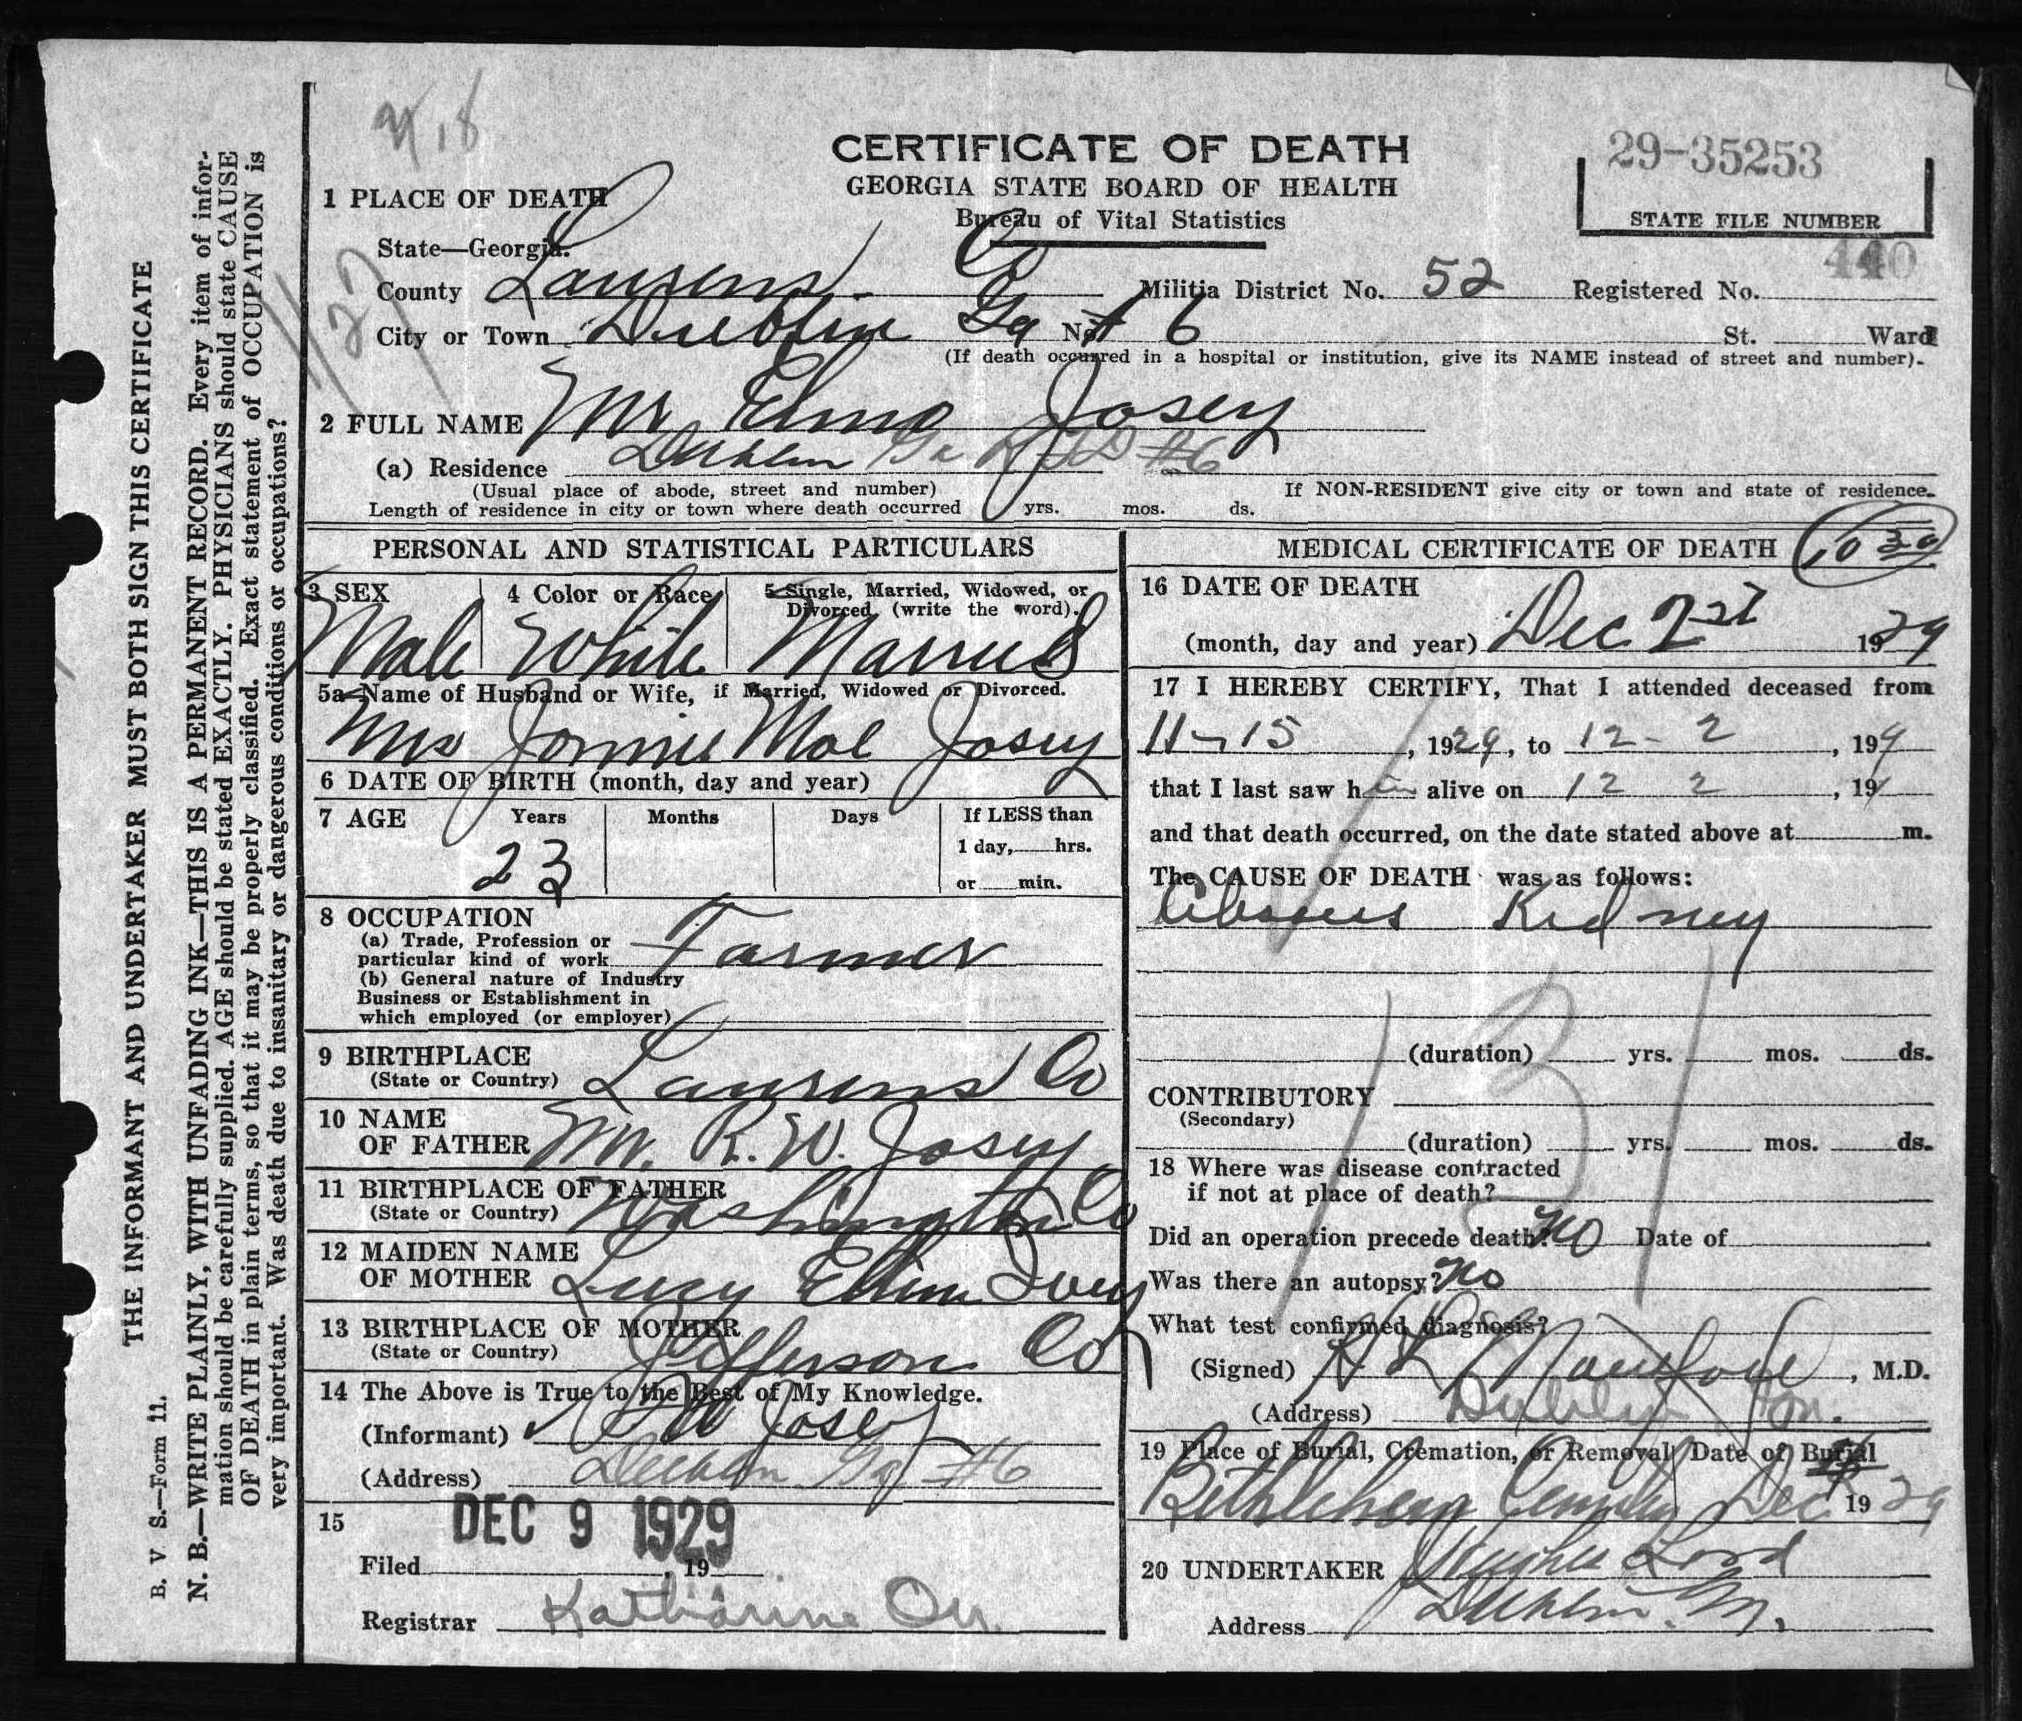 CERTIFICATE OF DEATH
GEORGIA STATE BOARD OF HEALTH
Bureau of Vital Statistics
29-35253
STATE FILE NUMBER
1 PLACE OF DEATH
State—Georgia.
County Laurens Co Militia District No. 52 Registered No. 440
City or Town Dublin Ga No. # 6 St. Ward
(If death occurred in a hospital or institution, give its NAME instead of street and number).
2 FULL NAME Mr Elmo Josey
(a) Residence Dublin Ga RFD #6
(Usual place of abode, street and number) If NON-RESIDENT give city or town and state of residence.
Length of residence in city or town where death occurred yrs. mos. ds.
PERSONAL AND STATISTICAL PARTICULARS
3 SEX 4 Color or Race 5 Single, Married, Widowed, or
Divorced (write the word).
Male White Married
5a Name of Husband or Wife, if Married, Widowed or Divorced.
Mrs Mae Josey
6 DATE OF BIRTH (month, day and year)
7 AGE Years Months Days If LESS than
1 day, hrs.
23
or min.
8 OCCUPATION
(a) Trade, Profession or
particular kind of work Farmer
(b) General nature of Industry
Business or Establishment in
which employed (or employer)
9 BIRTHPLACE
(State or Country) Laurens Co
10 NAME
OF FATHER Mr. R. W. Josey
11 BIRTHPLACE OF FATHER
(State or Country) Washington Co
12 MAIDEN NAME
OF MOTHER Lucy Ellen Ivey
13 BIRTHPLACE OF MOTHER
(State or Country) Jefferson Co
14 The Above is True to the Best of My Knowledge.
(Informant) R W Josey
(Address) Dublin Ga #6
15 DEC 9 1929
Filed , 19
Registrar Katharine Orr.
MEDICAL CERTIFICATE OF DEATH 10 30
16 DATE OF DEATH
(month, day and year) Dec 2st 1929
17 I HEREBY CERTIFY, That I attended deceased from
11-15, 1929, to 12-2, 199
that I last saw him alive on 12 2, 19
and that death occurred, on the date stated above at m.
The CAUSE OF DEATH was as follows:
Abscess Kidney
131
(duration) yrs. mos. ds.
CONTRIBUTORY
(Secondary)
(duration) yrs. mos. ds.
18 Where was disease contracted
if not at place of death?
Did an operation precede death? no Date of
Was there an autopsy? no
What test confirmed diagnosis?
(Signed) , M.D.
(Address) Dublin Ga.
19 Place of Burial, Cremation, or Removal Date of Burial
Bethlehem Cemetery Dec 1929
20 UNDERTAKER Hughes Lord
Address Dublin
THE INFORMANT AND UNDERTAKER MUST BOTH SIGN THIS CERTIFICATE
B. V S.—Form 11.
N. B.—WRITE PLAINLY, WITH UNFADING INK—THIS IS A PERMANENT RECORD. Every item of infor-
mation should be carefully supplied. AGE should be stated EXACTLY. PHYSICIANS should state CAUSE
OF DEATH in plain terms, so that it may be properly classified. Exact statement of OCCUPATION is
very important. Was death due to insanitary or dangerous conditions or occupations?